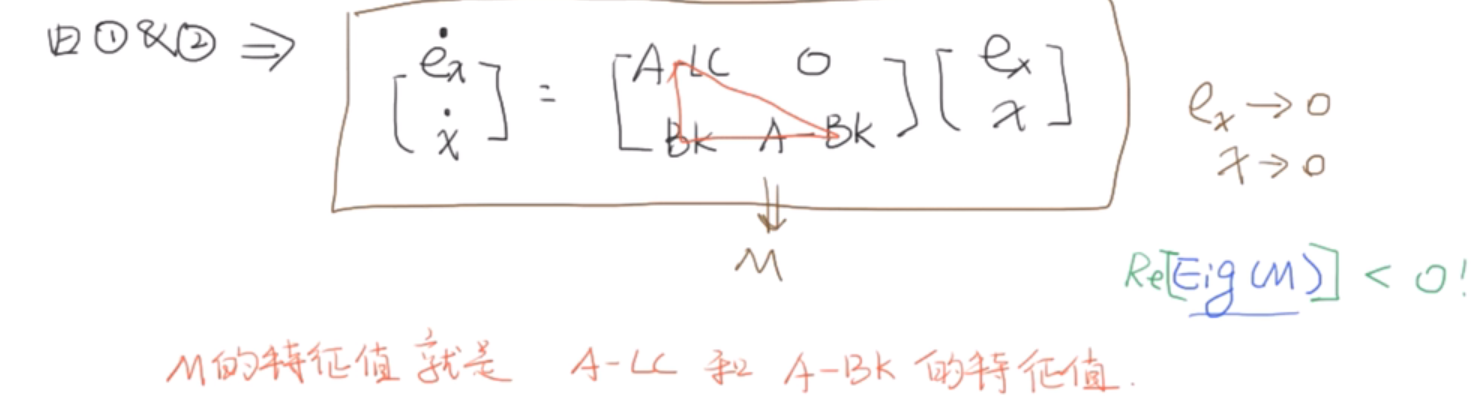 由①&②⇒
[ėx ẋ] = [A-LC 0 BK A-BK] [ex x]
ex→0
x→0
⇓
M
Re[Eig(M)] < 0!
M的特征值就是 A-LC 和 A-BK 的特征值.